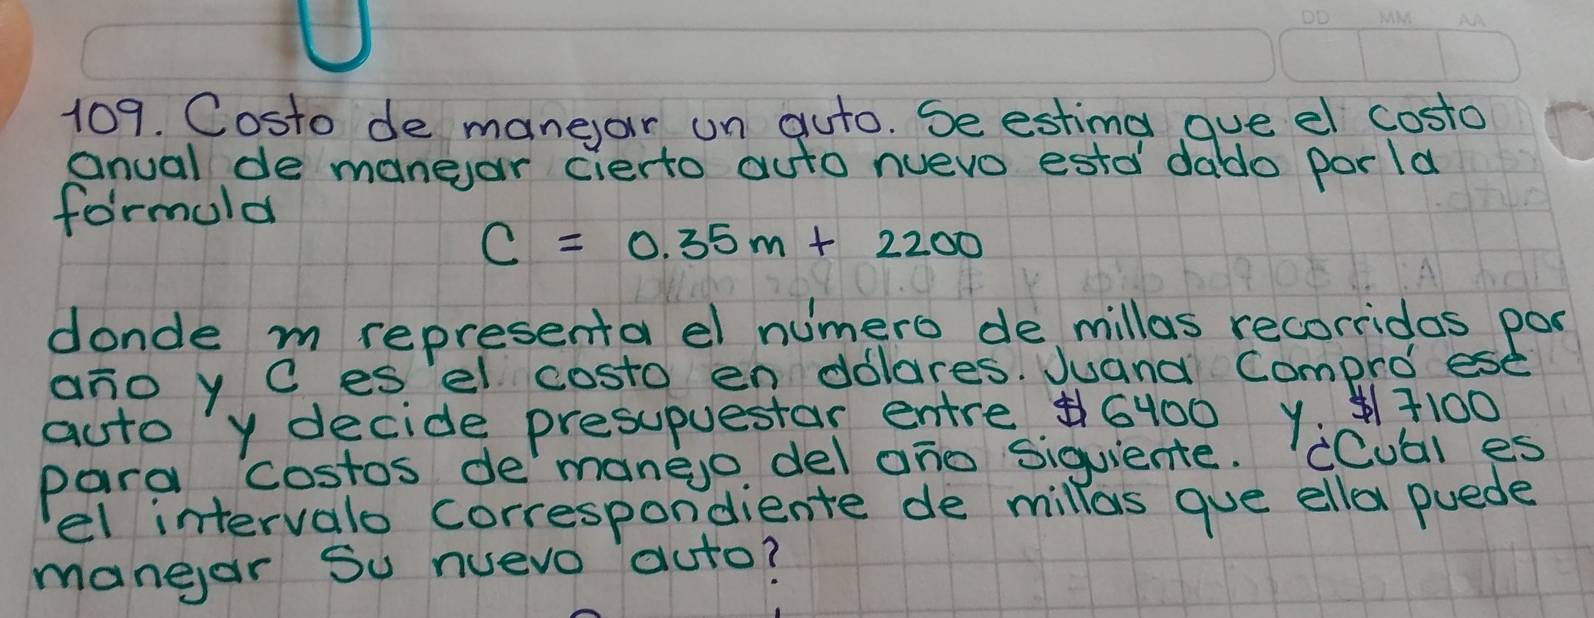 DD MM AA
109. Costo de manejar un auto. Se estima que el costo
anual de manejar cierto auto nuevo está dado por la
fórmula
C = 0.35m + 2200
donde m representa el número de millas recorridas por
año y C es el costo en dólares. Juana Compró ese
auto y decide presupuestar entre $6400 y $7100
para costos de manejo del año siguiente. ¿Cuál es
el intervalo correspondiente de millas que ella puede
manejar su nuevo auto?